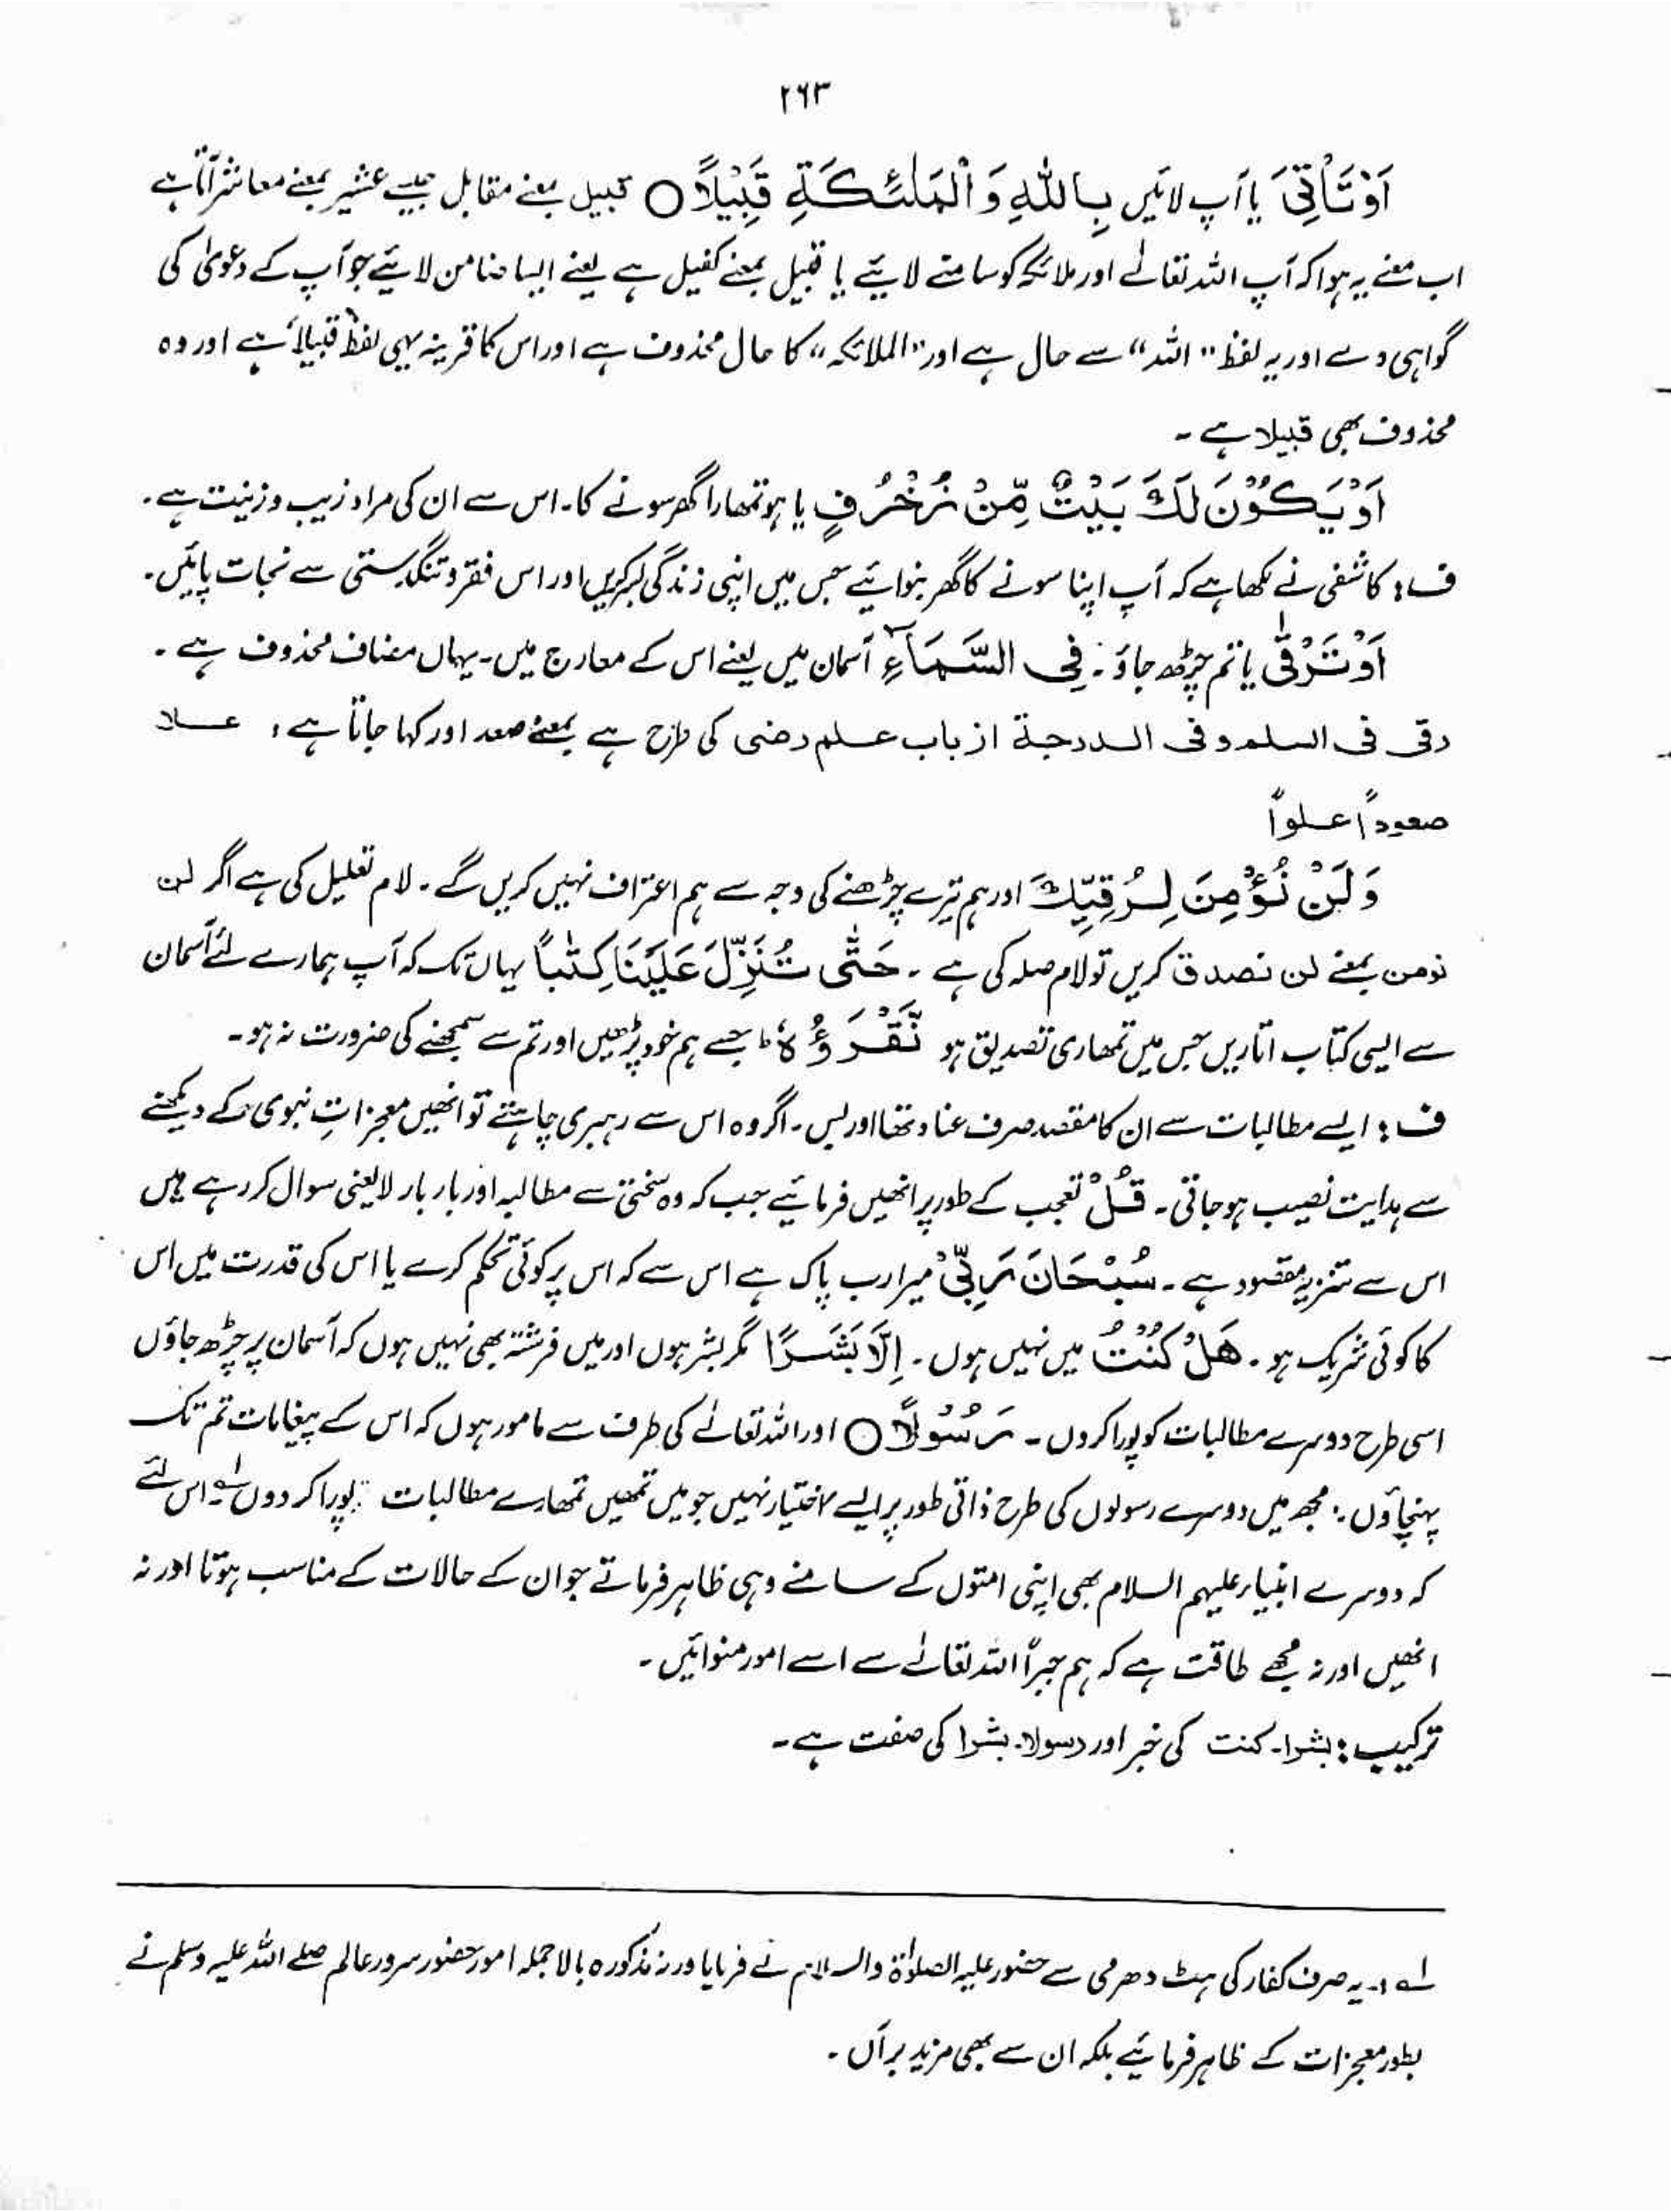 ۲۶۳
اَوْ تَأْتِیَ یا آپ لائیں بِاللّٰهِ وَ الْمَلٰٓئِكَةِ قَبِیْلًا ○ قبیل بمعنے مقابل جیسے عشیر بمعنے معاشر آتا ہے
اب معنے یہ ہوا کہ آپ اللہ تعالٰے اور ملائکہ کو سامنے لائیے یا قبیل بمعنے کفیل ہے یعنے ایسا ضامن لائیے جو آپ کے دعویٰ کی
گواہی دے اور یہ لفظ "اللہ" سے حال ہے اور "الملائکہ" کا حال محذوف ہے اور اس کا قرینہ یہی لفظ قبیلاً ہے اور وہ
محذوف بھی قبیلا ہے ۔
اَوْ یَكُوْنَ لَكَ بَیْتٌ مِّنْ زُخْرُفٍ یا ہو تمھارا گھر سونے کا ۔ اس سے ان کی مراد زیب و زینت ہے ۔
ف : کاشفی نے لکھا ہے کہ آپ اپنا سونے کا گھر بنوائیے جس میں اپنی زندگی بسر کریں اور اس فقر و تنگدستی سے نجات پائیں ۔
اَوْ تَرْقٰی یا تم چڑھ جاؤ ۔ فِی السَّمَآءِ آسمان میں یعنے اس کے معارج میں ۔ یہاں مضاف محذوف ہے ۔
رقی فی السلم و فی الدرجة از باب علم رضی کی طرح ہے بمعنے صعد اور کہا جاتا ہے ، علا
صعوداً علواً
وَ لَنْ نُّؤْمِنَ لِرُقِیِّكَ اور ہم تیرے چڑھنے کی وجہ سے ہم اعتراف نہیں کریں گے ۔ لام تعلیل کی ہے اگر لن
نومن بمعنے لن نصدق کریں تو لام صلہ کی ہے ۔ حَتّٰى تُنَزِّلَ عَلَیْنَا كِتٰبًا یہاں تک کہ آپ ہمارے لئے آسمان
سے ایسی کتاب اتاریں جس میں تمھاری تصدیق ہو نَّقْرَؤُهٗ ط جسے ہم خود پڑھیں اور تم سے سمجھنے کی ضرورت نہ ہو ۔
ف : ایسے مطالبات سے ان کا مقصد صرف عناد تھا اور بس ۔ اگر وہ اس سے رہبری چاہتے تو انھیں معجزاتِ نبوی کے دیکھنے
سے ہدایت نصیب ہو جاتی ۔ قُلْ تعجب کے طور پر انھیں فرمائیے جب کہ وہ سختی سے مطالبہ اور بار بار لایعنی سوال کر رہے ہیں
اس سے تنزیہ مقصود ہے ۔ سُبْحَانَ رَبِّیْ میرا رب پاک ہے اس سے کہ اس پر کوئی تحکم کرے یا اس کی قدرت میں اس
کا کوئی شریک ہو ۔ هَلْ كُنْتُ میں نہیں ہوں ۔ اِلَّا بَشَرًا مگر بشر ہوں اور میں فرشتہ بھی نہیں ہوں کہ آسمان پر چڑھ جاؤں
اسی طرح دوسرے مطالبات کو پورا کروں ۔ رَسُوْلًا ○ اور اللہ تعالٰے کی طرف سے مامور ہوں کہ اس کے پیغامات تم تک
پہنچاؤں ۔ مجھ میں دوسرے رسولوں کی طرح ذاتی طور پر ایسے اختیار نہیں جو میں تمھیں تمھارے مطالبات پورا کر دوں لہ اس لئے
کہ دوسرے انبیاء علیہم السلام بھی اپنی امتوں کے سامنے وہی ظاہر فرماتے جو ان کے حالات کے مناسب ہوتا اور نہ
انھیں اور نہ مجھے طاقت ہے کہ ہم جبراً اللہ تعالٰے سے اسے امور منوائیں ۔
ترکیب : بشرا ۔ کنت کی خبر اور رسولا ۔ بشرا کی صفت ہے ۔
لہ ۔ یہ صرف کفار کی ہٹ دھرمی سے حضور علیہ الصلوٰۃ والسلام نے فرمایا ورنہ مذکورہ بالا جملہ امور حضور سرور عالم صلے اللہ علیہ وسلم نے
بطور معجزات کے ظاہر فرمائیے بلکہ ان سے بھی مزید برآں ۔